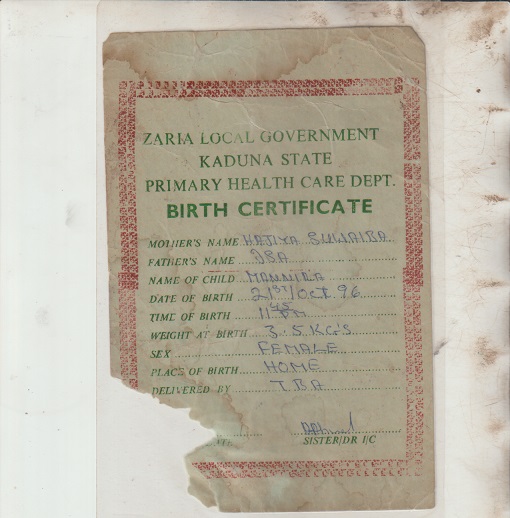 ZARIA LOCAL GOVERNMENT
KADUNA STATE
PRIMARY HEALTH CARE DEPT.
BIRTH CERTIFICATE
MOTHER'S NAME HAJIYA SUWAIBA
FATHER'S NAME ISA
NAME OF CHILD MANNIRA
DATE OF BIRTH 21ST/OCT 96
TIME OF BIRTH 11 45 PM
WEIGHT AT BIRTH 3.5KG'S
SEX FEMALE
PLACE OF BIRTH HOME
DELIVERED BY TBA
SISTER/DR I/C